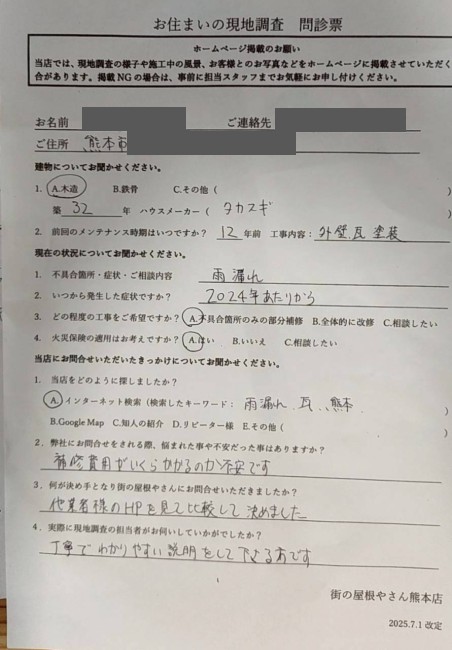 お住まいの現地調査　問診票
ホームページ掲載のお願い
当店では、現地調査の様子や施工中の風景、お客様とのお写真などをホームページに掲載させていただく
合があります。掲載NGの場合は、事前に担当スタッフまでお気軽にお申し付けください。
お名前　ご連絡先
ご住所　熊本市
建物についてお聞かせください。
1. A.木造　B.鉄骨　C.その他（　）
築 32 年　ハウスメーカー（　タカスギ　）
2. 前回のメンテナンス時期はいつですか？ 12 年前　工事内容：外壁、瓦 塗装
現在の状況についてお聞かせください。
1. 不具合箇所・症状・ご相談内容　雨漏れ
2. いつから発生した症状ですか？　2024年あたりから
3. どの程度の工事をご希望ですか？ A.不具合箇所のみの部分補修　B.全体的に改修　C.相談したい
4. 火災保険の適用はお考えですか？ A.はい　B.いいえ　C.相談したい
当店にお問合せいただいたきっかけについてお聞かせください。
1. 当店をどのように探しましたか？
A.インターネット検索（検索したキーワード：雨漏れ、瓦、熊本　）
B.Google Map　C.知人の紹介　D.リピーター様　E.その他（　）
2. 弊社にお問合せをされる際、悩まれた事や不安だった事はありますか？
補修費用がいくらかかるのか不安です
3. 何が決め手となり街の屋根やさんにお問合せいただきましたか？
他業者様のHPを見て比較して決めました
4. 実際に現地調査の担当者がお伺いしていかがでしたか？
丁寧でわかりやすい説明をして下さる方です
街の屋根やさん熊本店
2025.7.1 改定